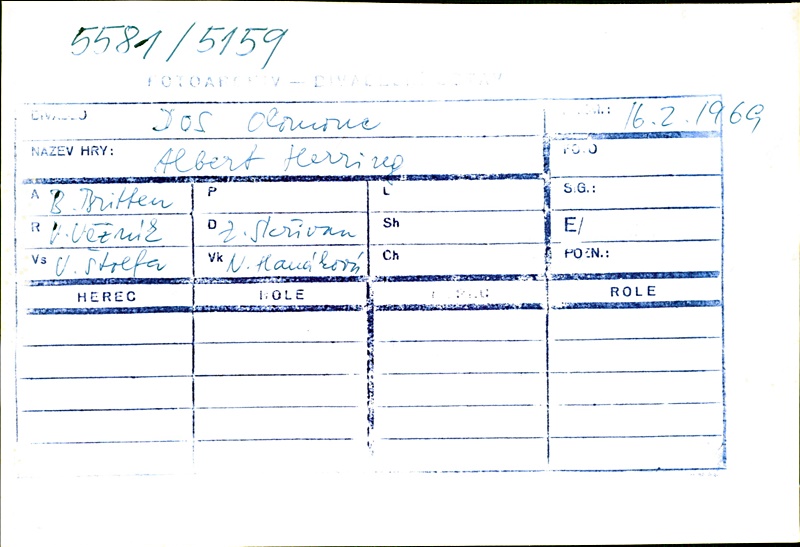 5581/5159
FOTOARCHIV – DIVADELNÍ ÚSTAV
DIVADLO DOS Olomouc 16.2.1969
NÁZEV HRY: Albert Herring FOTO
A B. Britten P L S.G.:
R V. Věžník D Z. Skřivan Sh E/
Vs V. Štolfa Vk N. Hanáková Ch POZN.:
HEREC ROLE HEREC ROLE